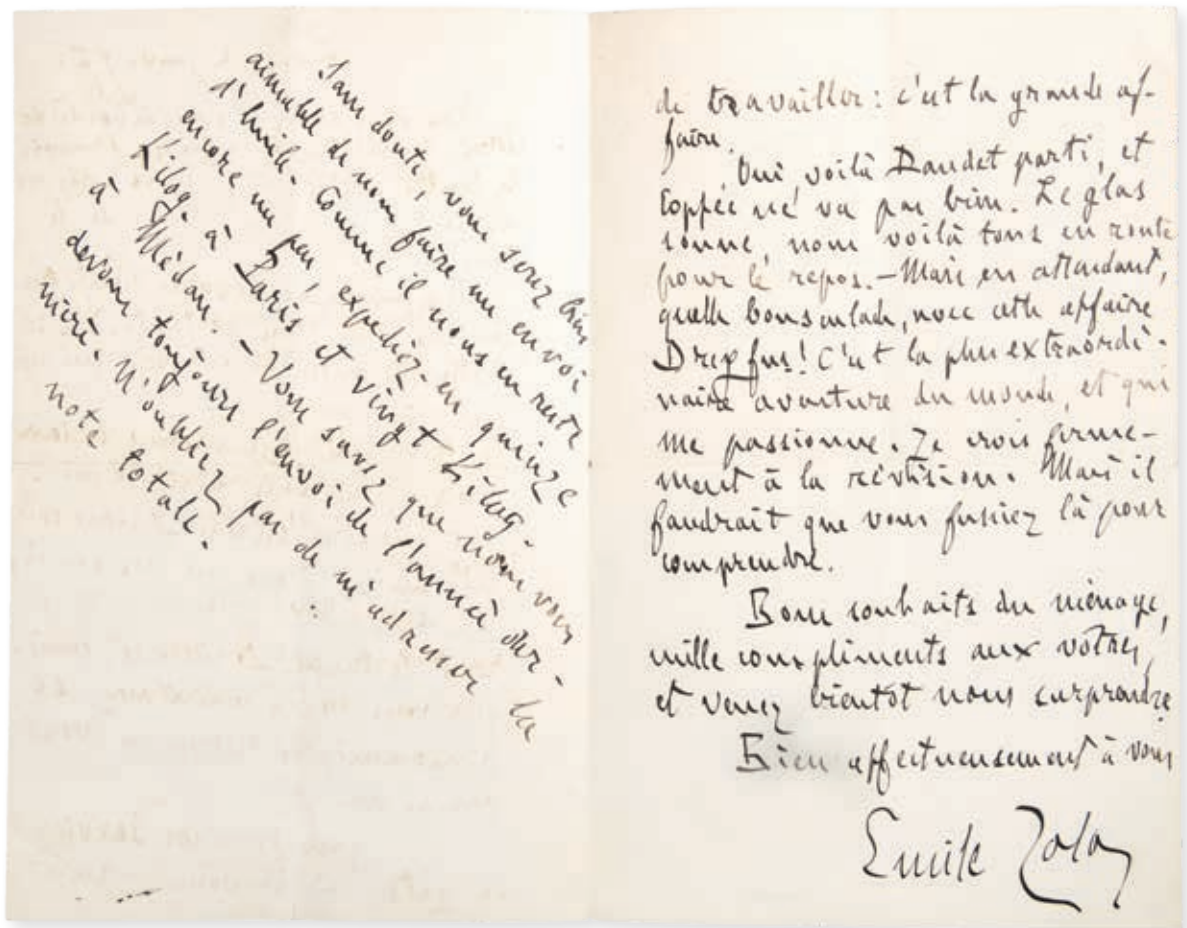 Sans doute, vous serez bien
aimable de nous faire un envoi
d'huile. Comme il nous en reste
encore un peu, expediez-en quinze
Kilog. à Paris et vingt Kilog.
à Médan. – Vous savez que nous vous
devons toujours l'envoi de l'année der-
nière. N'oubliez pas de m'adresser la
note totale.
de travailler : c'est la grande af-
faire.
Oui, voilà Daudet parti, et
Coppée ne va pas bien. Le glas
sonne, nous voilà tous en route
pour le repos. – Mais en attendant,
quelle bousculade, avec cette affaire
Dreyfus ! C'est la plus extraordi-
naire aventure du monde, et qui
me passionne. Je crois ferme-
ment à la révision. Mais il
faudrait que vous fussiez là pour
comprendre.
Bons souhaits du ménage,
mille compliments aux vôtres,
et venez bientôt nous surprendre
Bien affectueusement à vous
Emile Zola